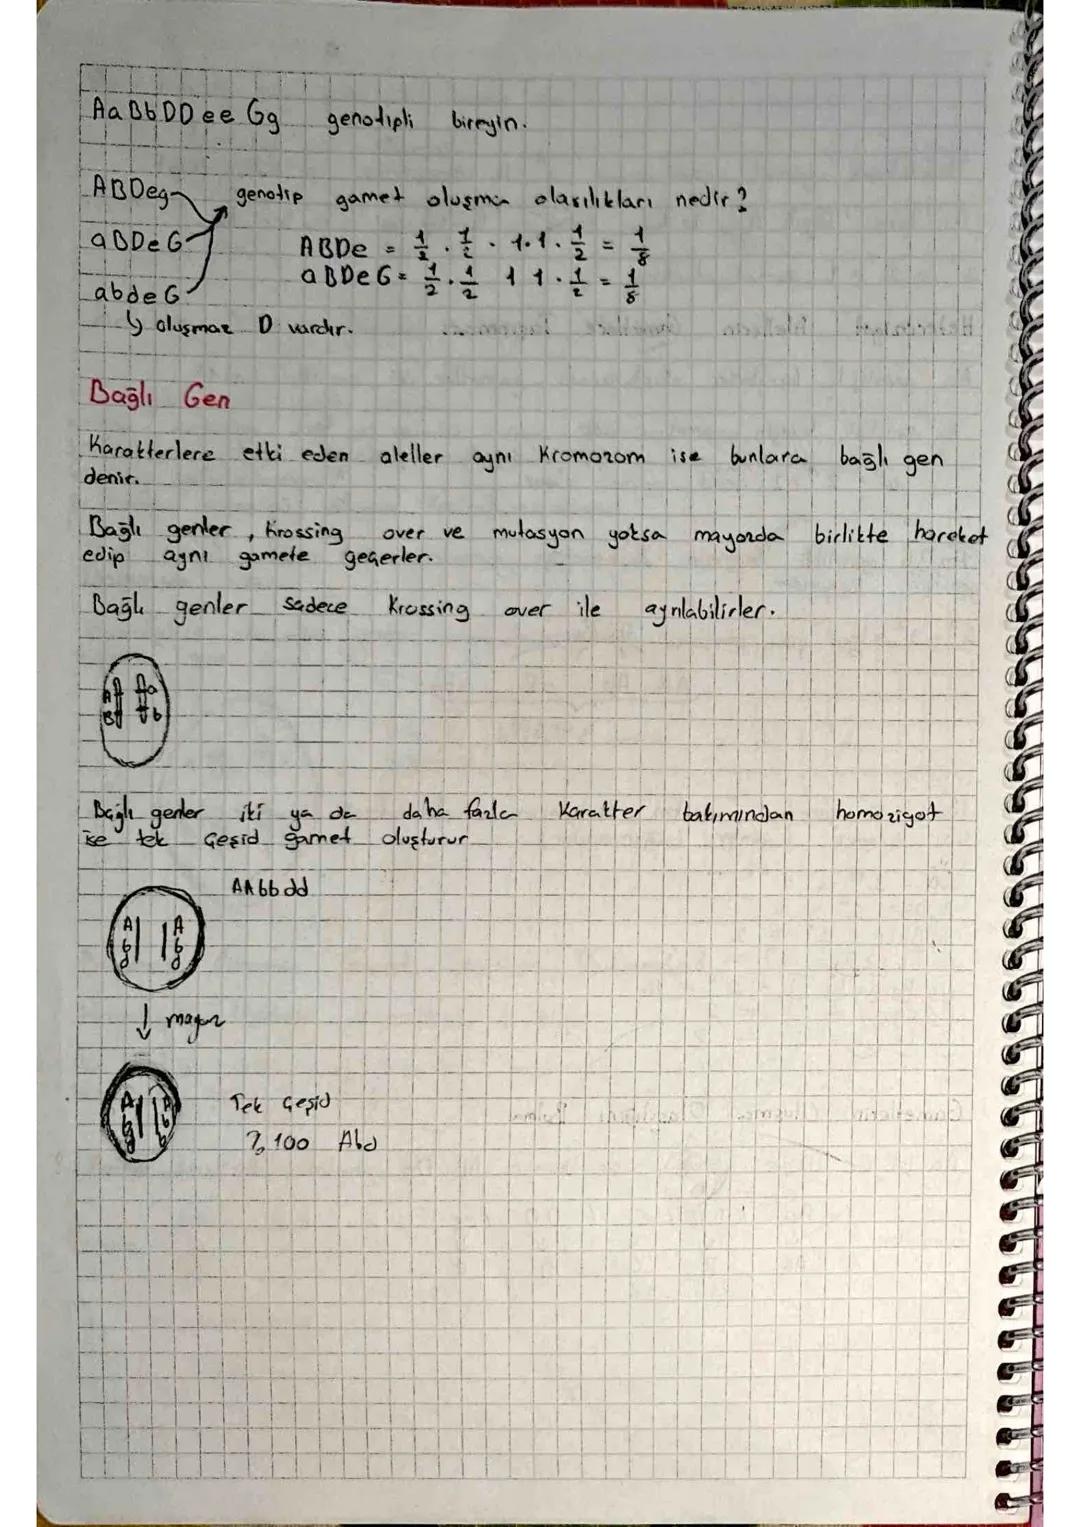 AaBbDDeeGg genotipli bireyin.
ABDeg genotip gamet oluşma olasılıkları nedir?
aBDeG
ABDe = 1/2 . 1/2 . 1.1. 1/2 = 1/8
aBDeG = 1/2 . 1/2 1 1 . 1/2 = 1/8
abdeG
↳ oluşmaz D vardır.
Bağlı Gen
Karakterlere etki eden aleller aynı Kromozom ise bunlara bağlı gen
denir.
Bağlı genler, krossing over ve mutasyon yoksa mayozda birlikte hareket
edip aynı gamete geçerler.
Bağlı genler sadece Krossing over ile ayrılabilirler.
A a
B b
Bağlı genler iki ya da daha fazla Karakter bakımından homozigot
ise tek çeşid gamet oluşturur
AAbbdd
A A
b b
d d
↓ mayoz
Tek çeşid
% 100 Abd